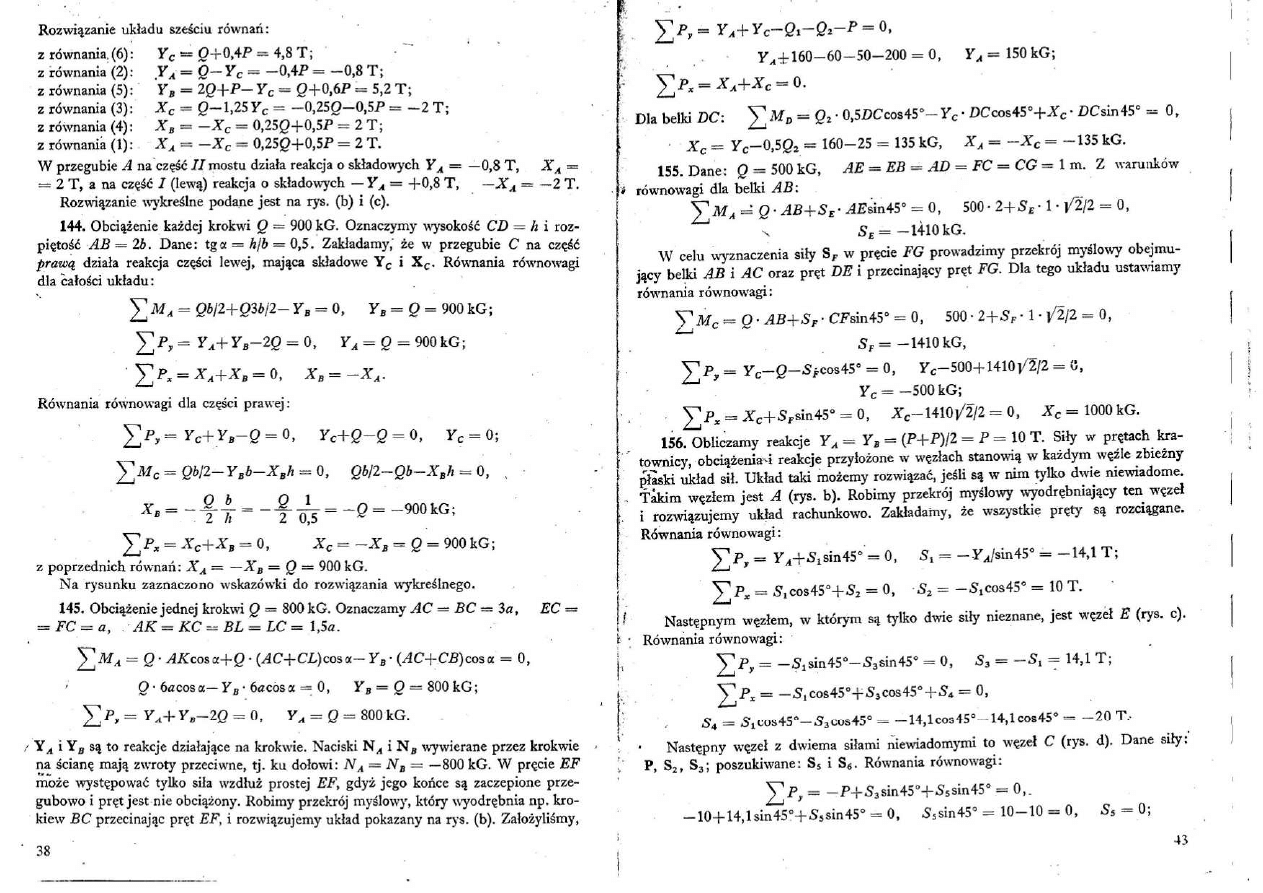 Rozwiązanie układu sześciu równań:
z równania (6): Y_C = Q+0,4P = 4,8 T;
z równania (2): Y_A = Q—Y_C = —0,4P = —0,8 T;
z równania (5): Y_B = 2Q+P—Y_C = Q+0,6P = 5,2 T;
z równania (3): X_C = Q—1,25Y_C = —0,25Q—0,5P = —2 T;
z równania (4): X_B = —X_C = 0,25Q+0,5P = 2 T;
z równania (1): X_A = —X_C = 0,25Q+0,5P = 2 T.
W przegubie A na część II mostu działa reakcja o składowych Y_A = —0,8 T, X_A =
= 2 T, a na część I (lewą) reakcja o składowych —Y_A = +0,8 T, —X_A = —2 T.
Rozwiązanie wykreślne podane jest na rys. (b) i (c).
144. Obciążenie każdej krokwi Q = 900 kG. Oznaczymy wysokość CD = h i roz-
piętość AB = 2b. Dane: tg α = h/b = 0,5. Zakładamy, że w przegubie C na część
prawą działa reakcja części lewej, mająca składowe Y_C i X_C. Równania równowagi
dla całości układu:
∑M_A = Qb/2+Q3b/2—Y_B = 0, Y_B = Q = 900 kG;
∑P_y = Y_A+Y_B—2Q = 0, Y_A = Q = 900 kG;
∑P_x = X_A+X_B = 0, X_B = —X_A.
Równania równowagi dla części prawej:
∑P_y = Y_C+Y_B—Q = 0, Y_C+Q—Q = 0, Y_C = 0;
∑M_C = Qb/2—Y_Bb—X_Bh = 0, Qb/2—Qb—X_Bh = 0,
X_B = —Q/2 b/h = —Q/2 1/0,5 = —Q = —900 kG;
∑P_x = X_C+X_B = 0, X_C = —X_B = Q = 900 kG;
z poprzednich równań: X_A = —X_B = Q = 900 kG.
Na rysunku zaznaczono wskazówki do rozwiązania wykreślnego.
145. Obciążenie jednej krokwi Q = 800 kG. Oznaczamy AC = BC = 3a, EC =
= FC = a, AK = KC = BL = LC = 1,5a.
∑M_A = Q · AKcos α+Q · (AC+CL)cos α—Y_B · (AC+CB)cos α = 0,
Q · 6acos α—Y_B · 6acos α = 0, Y_B = Q = 800 kG;
∑P_y = Y_A+Y_B—2Q = 0, Y_A = Q = 800 kG.
Y_A i Y_B są to reakcje działające na krokwie. Naciski N_A i N_B wywierane przez krokwie
na ścianę mają zwroty przeciwne, tj. ku dołowi: N_A = N_B = —800 kG. W pręcie EF
może występować tylko siła wzdłuż prostej EF, gdyż jego końce są zaczepione prze-
gubowo i pręt jest nie obciążony. Robimy przekrój myślowy, który wyodrębnia np. kro-
kiew BC przecinając pręt EF, i rozwiązujemy układ pokazany na rys. (b). Założyliśmy,
38
∑P_y = Y_A+Y_C—Q₁—Q₂—P = 0,
Y_A±160—60—50—200 = 0, Y_A = 150 kG;
∑P_x = X_A+X_C = 0.
Dla belki DC: ∑M_D = Q₂ · 0,5DCcos45°—Y_C · DCcos45°+X_C · DCsin45° = 0,
X_C = Y_C—0,5Q₂ = 160—25 = 135 kG, X_A = —X_C = —135 kG.
155. Dane: Q = 500 kG, AE = EB = AD = FC = CG = 1 m. Z warunków
równowagi dla belki AB:
∑M_A = Q · AB+S_E · AEsin45° = 0, 500 · 2+S_E · 1 · √2/2 = 0,
S_E = —1410 kG.
W celu wyznaczenia siły S_F w pręcie FG prowadzimy przekrój myślowy obejmu-
jący belki AB i AC oraz pręt DE i przecinający pręt FG. Dla tego układu ustawiamy
równania równowagi:
∑M_C = Q · AB+S_F · CFsin45° = 0, 500 · 2+S_F · 1 · √2/2 = 0,
S_F = —1410 kG,
∑P_y = Y_C—Q—S_Fcos45° = 0, Y_C—500+1410√2/2 = 0,
Y_C = —500 kG;
∑P_x = X_C+S_Fsin45° = 0, X_C—1410√2/2 = 0, X_C = 1000 kG.
156. Obliczamy reakcje Y_A = Y_B = (P+P)/2 = P = 10 T. Siły w prętach kra-
townicy, obciążenia i reakcje przyłożone w węzłach stanowią w każdym węźle zbieżny
płaski układ sił. Układ taki możemy rozwiązać, jeśli są w nim tylko dwie niewiadome.
Takim węzłem jest A (rys. b). Robimy przekrój myślowy wyodrębniający ten węzeł
i rozwiązujemy układ rachunkowo. Zakładamy, że wszystkie pręty są rozciągane.
Równania równowagi:
∑P_y = Y_A+S₁sin45° = 0, S₁ = —Y_A/sin45° = —14,1 T;
∑P_x = S₁cos45°+S₂ = 0, S₂ = —S₁cos45° = 10 T.
Następnym węzłem, w którym są tylko dwie siły nieznane, jest węzeł E (rys. c).
Równania równowagi:
∑P_y = —S₁sin45°—S₃sin45° = 0, S₃ = —S₁ = 14,1 T;
∑P_x = —S₁cos45°+S₃cos45°+S₄ = 0,
S₄ = S₁cos45°—S₃cos45° = —14,1cos45°—14,1cos45° = —20 T.
Następny węzeł z dwiema siłami niewiadomymi to węzeł C (rys. d). Dane siły:
P, S₂, S₃; poszukiwane: S₅ i S₆. Równania równowagi:
∑P_y = —P+S₃sin45°+S₅sin45° = 0,
—10+14,1sin45°+S₅sin45° = 0, S₅sin45° = 10—10 = 0, S₅ = 0;
43